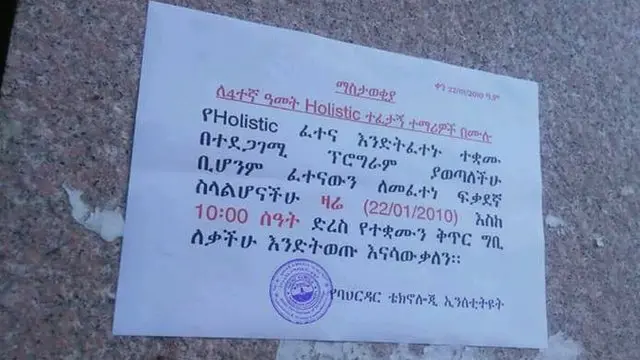 ማስታወቂያ
ቀን 22/01/2010 ዓ.ም
ለ4ተኛ ዓመት Holistic ተፈታኝ ተማሪዎች በሙሉ
የHolistic ፈተና እንድትፈተኑ ተቋሙ
በተደጋጋሚ ፕሮግራም ያወጣለችሁ
ቢሆንም ፈተናውን ለመፈተን ፍቃደኛ
ስላልሆናችሁ ዛሬ (22/01/2010) እስከ
10፡00 ሰዓት ድረስ የተቋሙን ቅጥር ግቢ
ለቃችሁ እንድትወጡ እናሳውቃለን፡፡
የባህርዳር ቴክኖሎጂ ኢንስቲትዩት